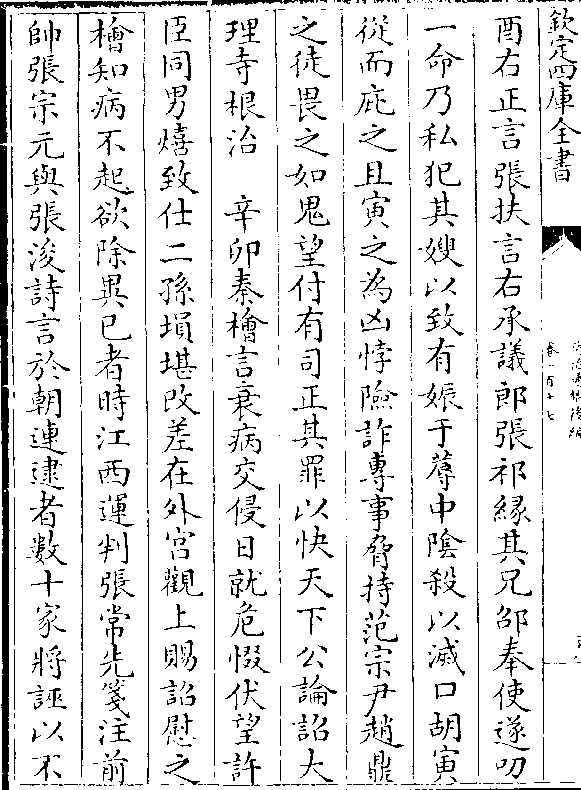 欽定四庫全書
酉右正言張扶言右承議郎張祁緣其兄邵奉使遂叨
一命乃私犯其嫂以致有娠于蓐中陰殺以滅口胡寅
從而庇之且寅之為凶悖險詐專事脅持范宗尹趙鼎
之徒畏之如鬼望付有司正其罪以快天下公論詔大
理寺根治　辛卯秦檜言衰病交侵日就危惙伏望許
臣同男熺致仕二孫塤堪改差在外宮觀上賜詔慰之
檜知病不起欲除異己者時江西運判張常先箋注前
帥張宗元與張浚詩言於朝連逮者數十家將誣以不